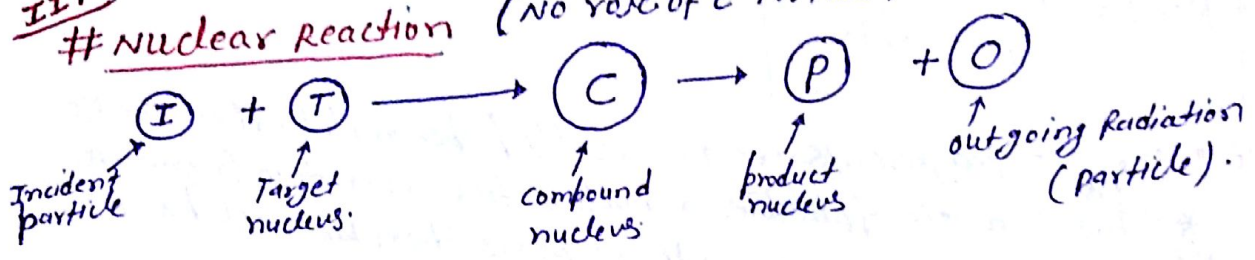 III.
# Nuclear Reaction (No
I + T → C → P + O
Incident particle
Target nucleus.
compound nucleus
product nucleus
outgoing Radiation (particle).